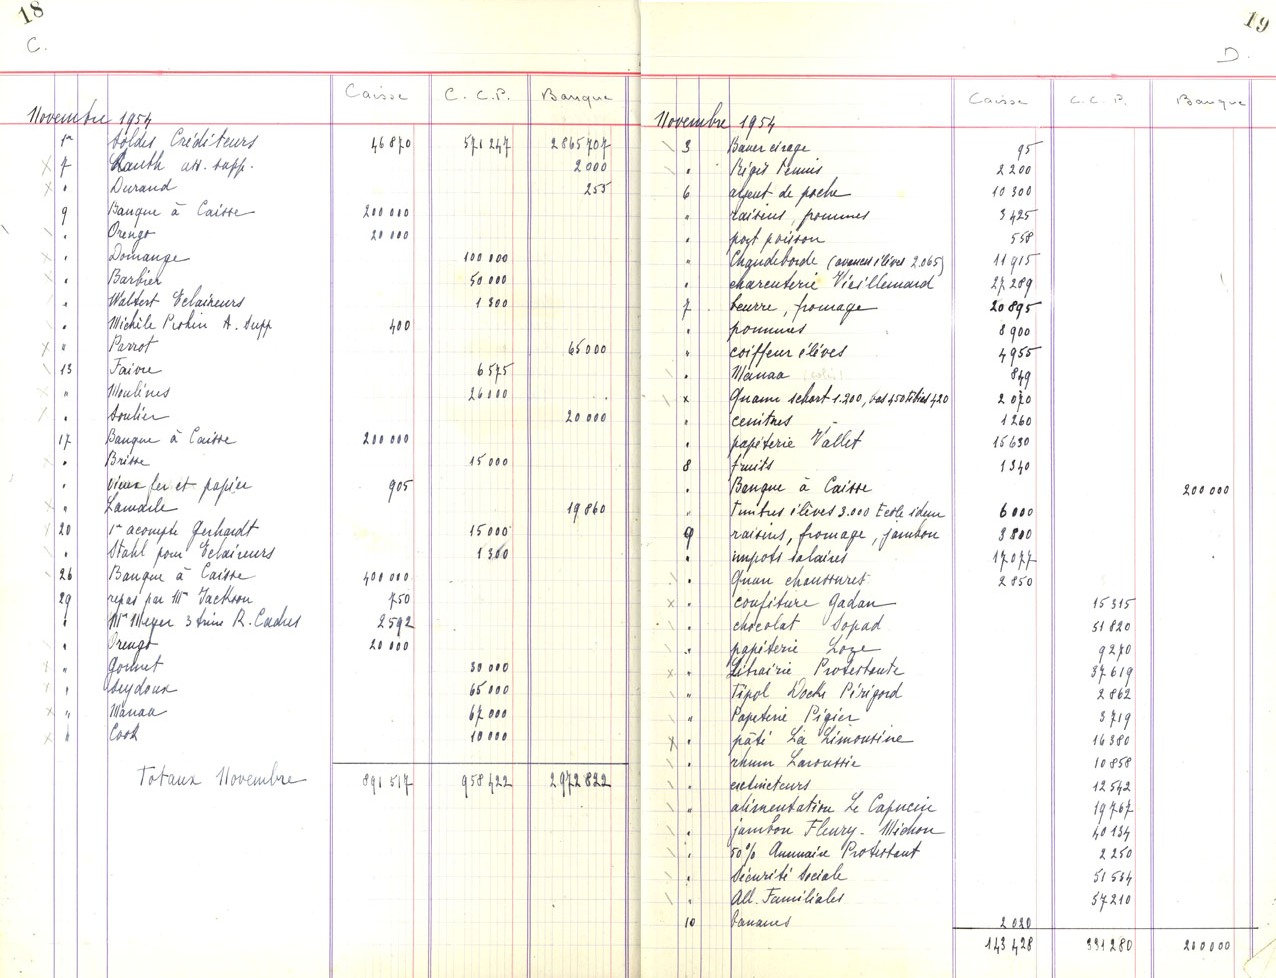 18
C.
Caisse C.C.P. Banque
Novembre 1954
1er Soldes Créditeurs 46870 571247 2865707
7 Rauth att. supp. 2000
" Durand 255
9 Banque à Caisse 200000
" Orengo 20000
" Domange 100000
" Barbier 50000
" Waltert Eclaireurs 1300
" Michèle Probin A. Supp 400
" Parrot 65000
13 Faivre 6575
" Moulines 26000
" Soulier 20000
17 Banque à Caisse 200000
" Brisse 15000
" vieux fer et papier 905
" Lamarle 19860
20 1er acompte Gerhardt 15000
" Stahl pour Eclaireurs 1300
26 Banque à Caisse 400000
29 repas par Mr Jackson 750
" Mr Meyer 3 trim R. Cadres 2592
" Orengo 20000
" Gonnet 30000
" Seydoux 65000
" Wanaa 67000
" Cook 10000
Totaux Novembre 891517 958422 2972822
19
D.
Caisse C.C.P. Banque
Novembre 1954
3 Bauer cirage 95
" Régis Tennis 2200
6 argent de poche 10300
" raisins, pommes 3425
" port poisson 558
" Chaudeborde (avances élèves 2.065) 11915
" charcuterie Vieillemard 27289
7 beurre, fromage 20895
" pommes 8900
" coiffeur élèves 4955
" Wanaa 849
x Quann schort 1.200, bas 450 Tibias 420 2070
" centres 1260
" papèterie Vallet 15630
8 fruits 1340
" Banque à Caisse 200000
" Timbres élèves 3.000 Ecole idem 6000
9 raisins, fromage, jambon 3800
" impots salaires 17077
" Quan chaussures 2850
" confiture Gadan 15315
" chocolat Sopad 51820
" papèterie Loze 9270
" Librairie Protestante 37619
" Tipol Docks Périgord 2862
" Papeterie Pigier 3719
" pâté La Limousine 16380
" rhum Laroussie 10858
" extincteurs 12542
" alimentation Le Capucin 19767
" jambon Fleury-Michon 40134
" 50% Annuaire Protestant 2250
" Sécurité Sociale 51534
" All. Familiales 57210
10 bananes 2020
143428 331280 200000